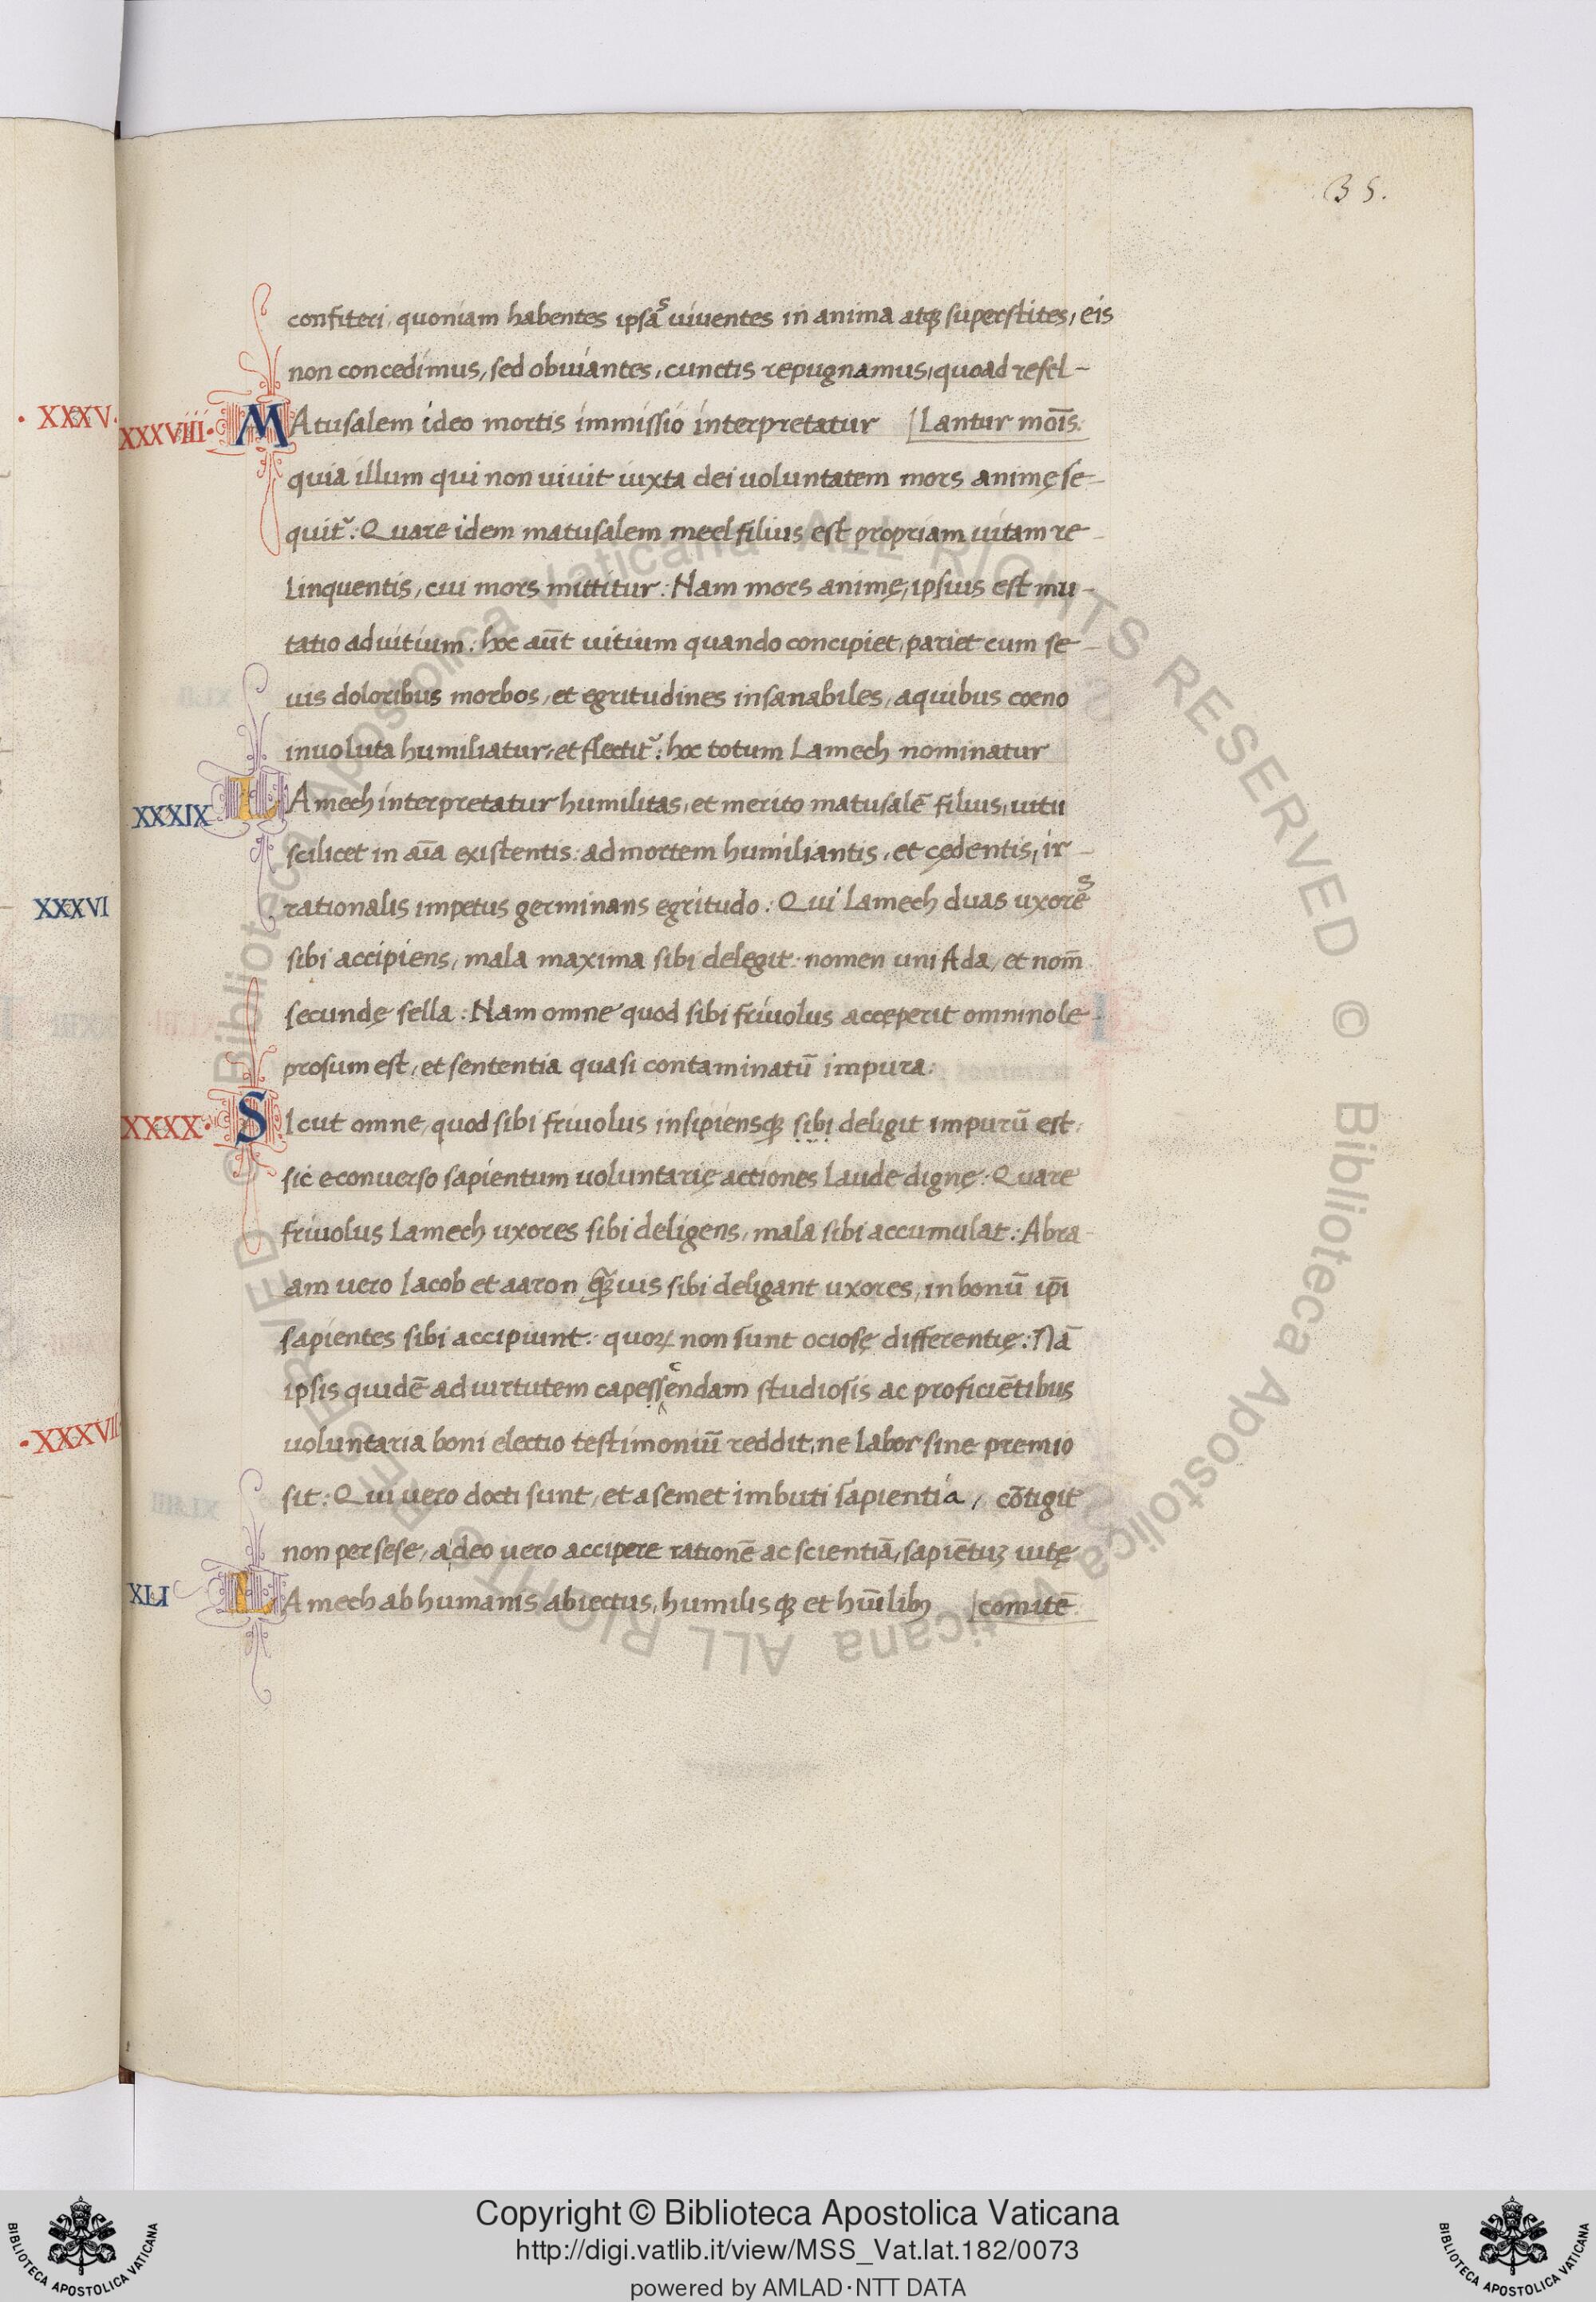 35.
confiteri, quoniam habentes ipsaˢ viventes in anima atqꝫ superstites, eis
non concedimus, sed obuiantes, cunctis repugnamus, quoad refel-
XXXVIII. MAtusalem ideo mortis immissio interpretatur [Lantur mōīs.
quia illum qui non uiuit iuxta dei uoluntatem mors animę se-
quit᷑: Quare idem matusalem meel filius est propriam uitam re-
linquentis, cui mors mittitur: Nam mors animę, ipsius est mu-
tatio ad uitium: hoc aūt uitium quando concipiet, pariet cum se-
uis doloribus morbos, et egritudines insanabiles, a quibus coeno
inuoluta humiliatur, et flectit᷑: hoc totum Lamech nominatur
XXXIX LAmech interpretatur humilitas, et merito matusalē filius, uitii
scilicet in aīa existentis: ad mortem humiliantis, et cędentis, ir-
rationalis impetus germinans egritudo: Qui Lamech duas uxoreˢ
sibi accipiens, mala maxima sibi delegit: nomen uni Ada, et nom̄
secundę sella: Nam omne quod sibi friuolus accęperit omnino le-
prosum est, et sententia quasi contaminatū impura:
XXXX. SIcut omne, quod sibi friuolus insipiensqꝫ sibi deligit impurū est:
sic econuerso sapientum uoluntarię actiones laude dignę: Quare
friuolus Lamech uxores sibi deligens, mala sibi accumulat: Abra-
am uero Iacob et aaron qꝫ̃uis sibi deligant uxores, in bonū ip̄i
sapientes sibi accipiunt: quoꝝ non sunt ociosę differentię: Nā
ipsis quidē ad uirtutem capessendam studiosis ac proficiētibus
uoluntaria boni electio testimoniū reddit, ne labor sine premio
sit: Qui uero docti sunt, et a semet imbuti sapientia, cōtigit
non per sese, a deo uero accipere rationē ac scientiā, sapiētuꝫ uitę
XLI LAmech ab humanis abiectus, humilisqꝫ et hūīlibꝫ [comitē
. XXXV.
XXXVI
. XXXVII
Copyright © Biblioteca Apostolica Vaticana
http://digi.vatlib.it/view/MSS_Vat.lat.182/0073
powered by AMLAD·NTT DATA
BIBLIOTECA APOSTOLICA VATICANA
BIBLIOTECA APOSTOLICA VATICANA
© Biblioteca Apostolica Vaticana ALL RIGHTS RESERVED © Biblioteca Apostolica Vaticana ALL RIGHTS RESERVED